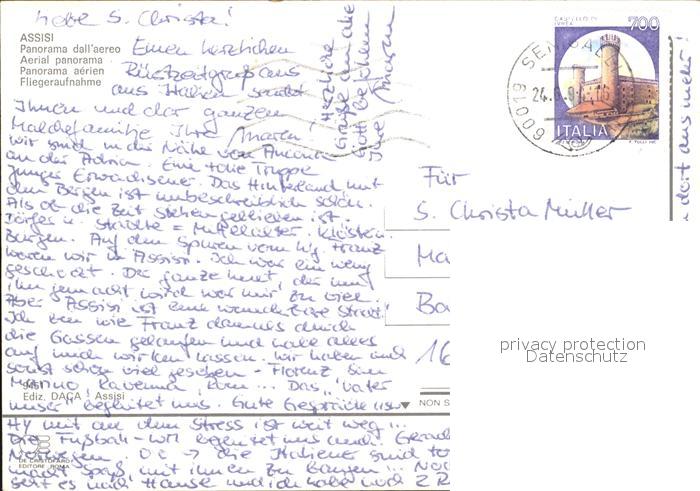 liebe S. Christa!
ASSISI
Panorama dall'aereo
Aerial panorama
Panorama aérien
Fliegeraufnahme
Einen herzlichen
Rüstzeitgruß aus
aus Italien sendet
Ihnen und der ganzen
Maldefamilie Ihre Maren!
Wir sind in der Nähe von Ancona
an der Adria. Eine tolle Truppe
junger Erwachsener. Das Hinterland mit
den Bergen ist unbeschreiblich schön.
Als ob die Zeit stehen geblieben ist.
Dörfer u. Städte = Mittelalter. Klöster.
Burgen. Auf den Spuren vom hlg. Franz
waren wir in Assisi. Ich war ein wenig
geschockt. Der ganze
ihn gemacht wird war mir zu viel.
Aber Assisi ist eine wunderbare Stadt.
Ich bin wie Franz damals durch
die Gassen gelaufen und habe alles
auf mich wirken lassen. Wir haben auch
sonst schon viel gesehen - Florenz San
Marino Ravenna, Rom... Das "Vater
unser" begleitet uns. Gute Gespräche
9451
Ediz. DACA Assisi
NON S
mit an dem Stress ist weit weg...
Die Fußball-WM begleitet uns auch. Gerade
Norwegen. die Italiener sind
macht Spaß mit ihnen zu
geht es nach Hause und ich habe noch 2
DE CRISTOFARO
EDITORE ROMA
Herzliche
Grüße an alle
Gott befohlen
Ihre Maren
CASTELLO DI
IVREA
700
ITALIA
60019 SENIGALLIA
24.
Für
S. Christa Müller
Ma
Ba
16
dort aus mehr!
privacy protection
Datenschutz